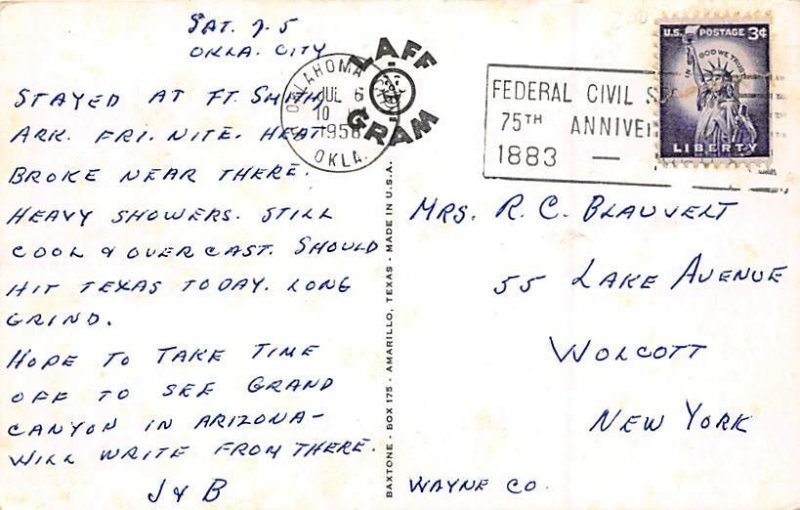 SAT. 7-5
OKLA. CITY
STAYED AT FT. SMITH
ARK. FRI. NITE. HEAT
BROKE NEAR THERE.
HEAVY SHOWERS. STILL
COOL & OVERCAST. SHOULD
HIT TEXAS TODAY. LONG
GRIND.
HOPE TO TAKE TIME
OFF TO SEE GRAND
CANYON IN ARIZONA-
WILL WRITE FROM THERE.
J & B
LAFF
GRAM
OKLAHOMA
JUL 6
10
OKLA.
BAXTONE - BOX 175 - AMARILLO, TEXAS - MADE IN U.S.A.
FEDERAL CIVIL
75TH ANNIVE
1883 —
U.S. POSTAGE 3¢
IN GOD WE TRUST
LIBERTY
MRS. R. C. BLAUVELT
55 LAKE AVENUE
WOLCOTT
NEW YORK
WAYNE CO.